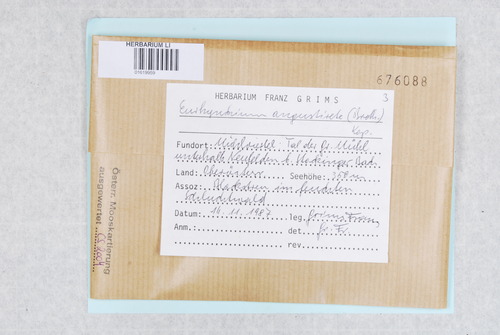 HERBARIUM LI
676088
HERBARIUM FRANZ GRIMS
3
Eurhynchium angustirete (Broth.)
Kop.
Fundort: Mühlviertel Tal der gr. Mühl
unterhalb Neufelden b.
Land: Oberösterr. Seehöhe: 350m
Assoz: Waldboden im feuchten
Schluchtwald
Datum: 16.11.1987 leg. Grims Franz
Anm. det. Gr. Fr.
rev.
Österr. Mooskartierung
ausgewertet